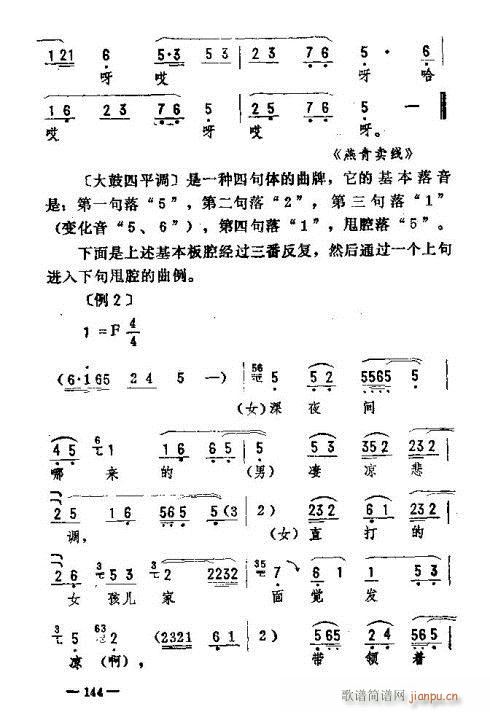 1 2 1 6 5·3 5 3 2 3 7 6 5· 6
呀 哎 呀 哈
1 6 2 3 7 6 5 2 5 7 6 5 —
哎 呀 哎 呀。
《燕青卖线》
〔大鼓四平调〕是一种四句体的曲牌，它的基本落音
是：第一句落“5”，第二句落“2”，第三句落“1”
（变化音“5、6”），第四句落“1”，甩腔落“5”。
下面是上述基本板腔经过三番反复，然后通过一个上句
进入下句甩腔的曲例。
〔例2〕
1=F 4/4
(6·165 2 4 5 —) 5 5 2 5565 5
(女)深 夜 间
4 5 1 1 6 6 5 5 5 3 352 232
哪 来 的 (男) 凄 凉 悲
2 5 2 4 565 5 (3 2) 232 6 1 232
调， (女) 直 打 的
2 6 5 3 2 2232 7 6 1 5 3
女 孩儿 家 面 觉 发
5 2 (2321 6 1 2) 565 2 4 565
凉 (啊)， 带 领 着
— 144 —
歌谱简谱网
jianpu.cn